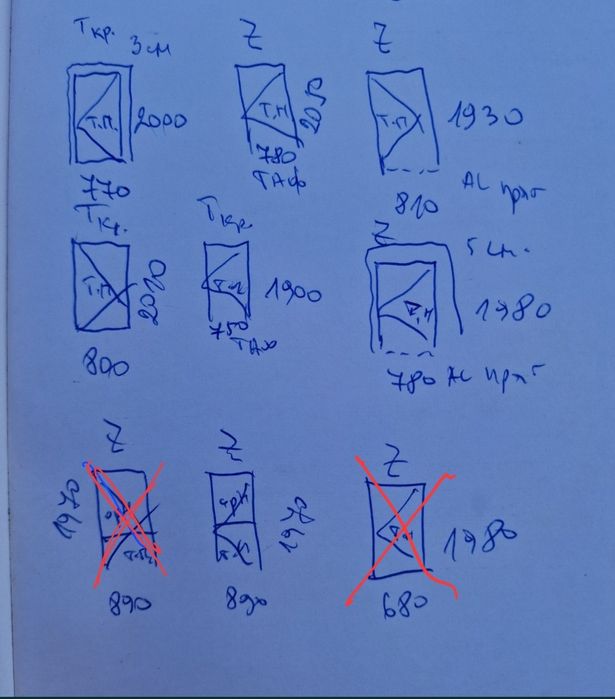 Ткр. 3 см
Т.П. 2000
770
Z
Т.П 2050
780
ТАФ
Z
Т.П 1930
810 AL прят
Ткр.
Т.П 2020
800
Ткр
Т.П 1900
750
ТАФ
Z 5 см.
Т.П 1980
780 AL прят
Z
1970
890
Z
1970
890
Z
1980
680